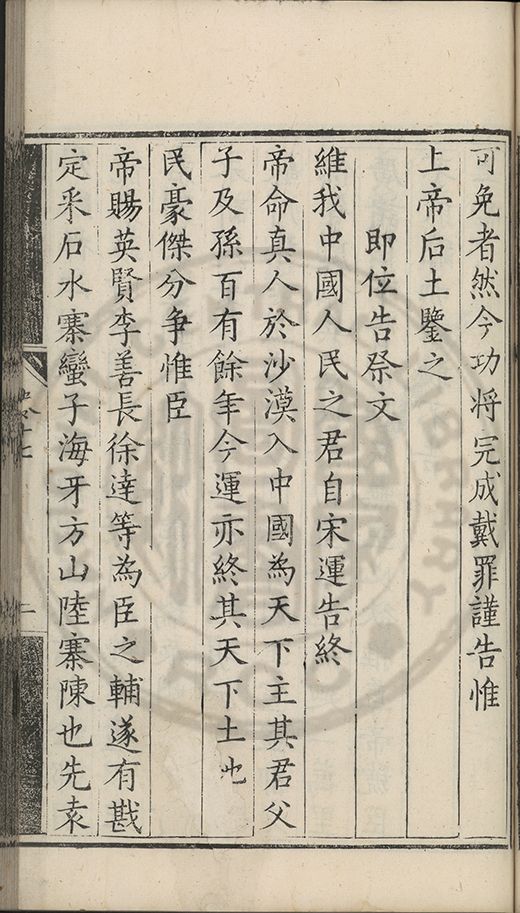 可免者然今功将完成戴罪謹告惟
上帝后土鑒之
即位告祭文
維我中國人民之君自宋運告終
帝命真人於沙漠入中國為天下主其君父
子及孫百有餘年今運亦終其天下土地
民豪傑分争惟臣
帝賜英賢李善長徐達等為臣之輔遂有戡
定采石水寨蠻子海牙方山陸寨陳也先袁